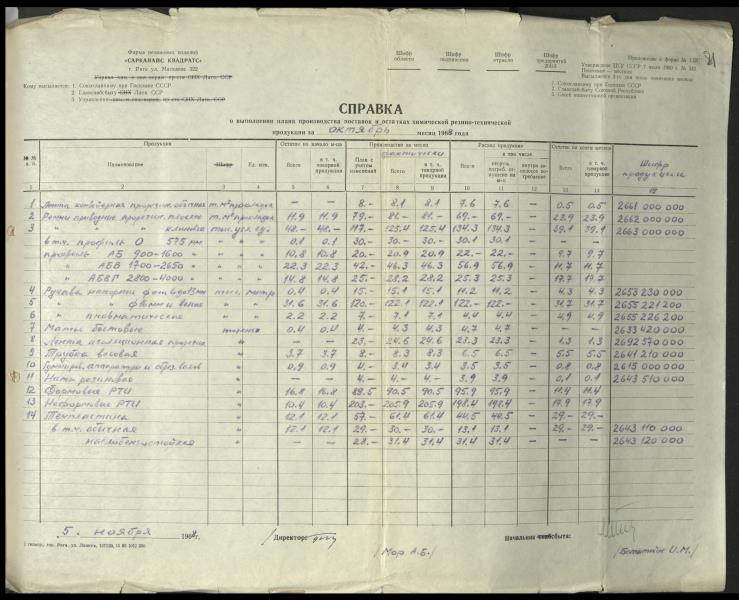 Фирма резиновых изделий
«САРКАНАЙС КВАДРАТС»
г. Рига ул. Маскавас 322
Кому высылается: 1. Союзглавхиму при Госплане СССР
2. Главснабсбыту СНХ Латв. ССР
3. Управлению
Шифр области
Шифр подчинения
Шифр отрасли
Шифр предприятий
Приложение к форме № 1
Утверждено ЦСУ СССР
Почтовая — местное
1. Союзглавхиму при Госплане СССР
2. Главснабсбыту Союзной Республики
81
СПРАВКА
о выполнении плана производства поставок и остатках химической резино-технической
продукции за октябрь месяц 1968 года
№№ п. п. Продукция Остатки на начало м-ца Производство за месяц Расход продукции Остаток на конец месяца Шифр продукции
фактически
Наименование Шифр Ед. изм. Всего в т. ч. товарной продукции План с учетом изменений Всего в т. ч. товарной продукции Всего в том числе Всего в т. ч. товарной продукции
1 2 3 4 5 6 7 8 9 10 11 12 13 14 15
1 Лента конвейерная прорезин. обычная т.м² прокладки — — 8.- 8.1 8.1 7.6 7.6 — 0.5 0.5 2661 000 000
2 Ремни приводные прорезин. плоские т.м² прокладки 11.9 11.9 79.- 81.- 81.- 69.- 69.- — 23.9 23.9 2662 000 000
3 " " клиновые тыс. усл. ед. 48.- 48.- 117.- 125.4 125.4 134.3 134.3 — 39.1 39.1 2663 000 000
в т.ч. профиль О 575 рш " " " 0.1 0.1 30.- 30.- 30.- 30.1 30.1 — — —
профиль АБ 900-1600 " " " 10.8 10.8 20.- 20.9 20.9 22.- 22.- — 9.7 9.7
" АБВ 1700-2650 " " " 22.3 22.3 42.- 46.3 46.3 56.9 56.9 — 11.7 11.7
" АБВГ 2800-4000 " " " 14.8 14.8 25.- 28.2 28.2 25.3 25.3 — 17.7 17.7
4 Рукава напорные тыс. метр 0.4 0.4 15.- 15.1 15.1 11.2 11.2 — 4.3 4.3 2653 230 000
5 " " " 31.6 31.6 120.- 122.1 122.1 122.- 122.- — 31.7 31.7 2655 221 200
6 " пневматические " " 2.2 2.2 7.- 7.1 7.1 4.4 4.4 — 4.9 4.9 2655 226 200
7 Маты бытовые тонна 0.4 0.4 4.- 4.3 4.3 4.7 4.7 — — — 2633 420 000
8 Лента изоляционная прорезин " — — 23.- 24.6 24.6 23.3 23.3 — 1.3 1.3 2692 570 000
9 Трубка весовая " 3.7 3.7 8.- 8.3 8.3 6.5 6.5 — 5.5 5.5 2641 210 000
10 " 0.9 0.9 4.- 3.4 3.4 3.5 3.5 — 0.8 0.8 2615 000 000
11 Нить резиновая " — — 4.- 4.- 4.- 3.9 3.9 — 0.1 0.1 2643 510 000
12 Формовые РТИ " 16.8 16.8 89.5 90.5 90.5 95.9 95.9 — 11.4 11.4
13 Неформовые РТИ " 10.4 10.4 203.- 205.9 205.9 198.4 198.4 — 17.9 17.9
14 Техпластина " 12.1 12.1 57.- 61.4 61.4 44.5 44.5 — 29.- 29.-
в т.ч. обычная " 12.1 12.1 29.- 30.- 30.- 13.1 13.1 — 29.- 29.- 2643 110 000
маслобензостойкая " — — 28.- 31.4 31.4 31.4 31.4 — — — 2643 120 000
5. ноября 1968 г.
/ Директор:
/Мор А.Б./
Начальник сбыта:
/Ботвинник И.М./